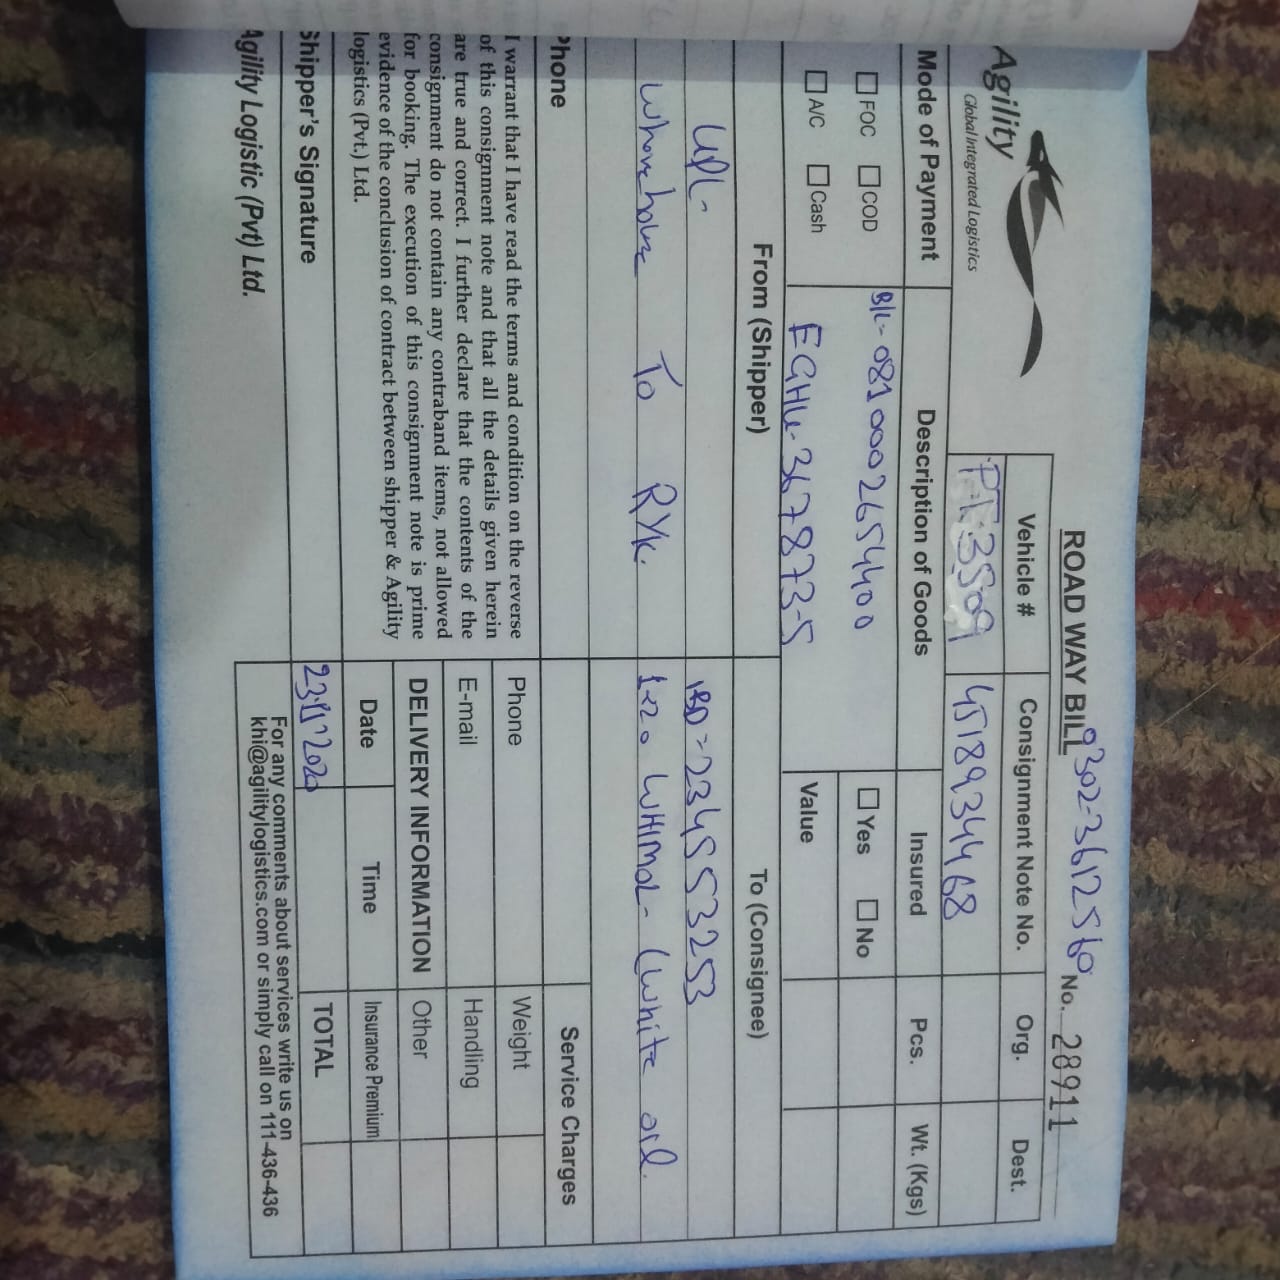 ROAD WAY BILL 0302-3612560 No. 28911
Agility
Global Integrated Logistics
Vehicle # Consignment Note No. Org. Dest.
PT.3509 4518934468
Mode of Payment Description of Goods Insured Pcs. Wt. (Kgs)
FOC COD B/L- 0810002654400 Yes No
A/C Cash EGHU-367873-5 Value
From (Shipper) To (Consignee)
UPL- IBD = 234553253
To RYK. 1x20 WHIMOL- (White oil
Phone Service Charges
I warrant that I have read the terms and condition on the reverse
of this consignment note and that all the details given herein
are true and correct. I further declare that the contents of the
consignment do not contain any contraband items, not allowed
for booking. The execution of this consignment note is prime
evidence of the conclusion of contract between shipper & Agility
logistics (Pvt.) Ltd.
Phone Weight
E-mail Handling
DELIVERY INFORMATION Other
Date Time Insurance Premium
Shipper's Signature 23.11.2020 TOTAL
Agility Logistic (Pvt) Ltd.
For any comments about services write us on
khi@agilitylogistics.com or simply call on 111-436-436